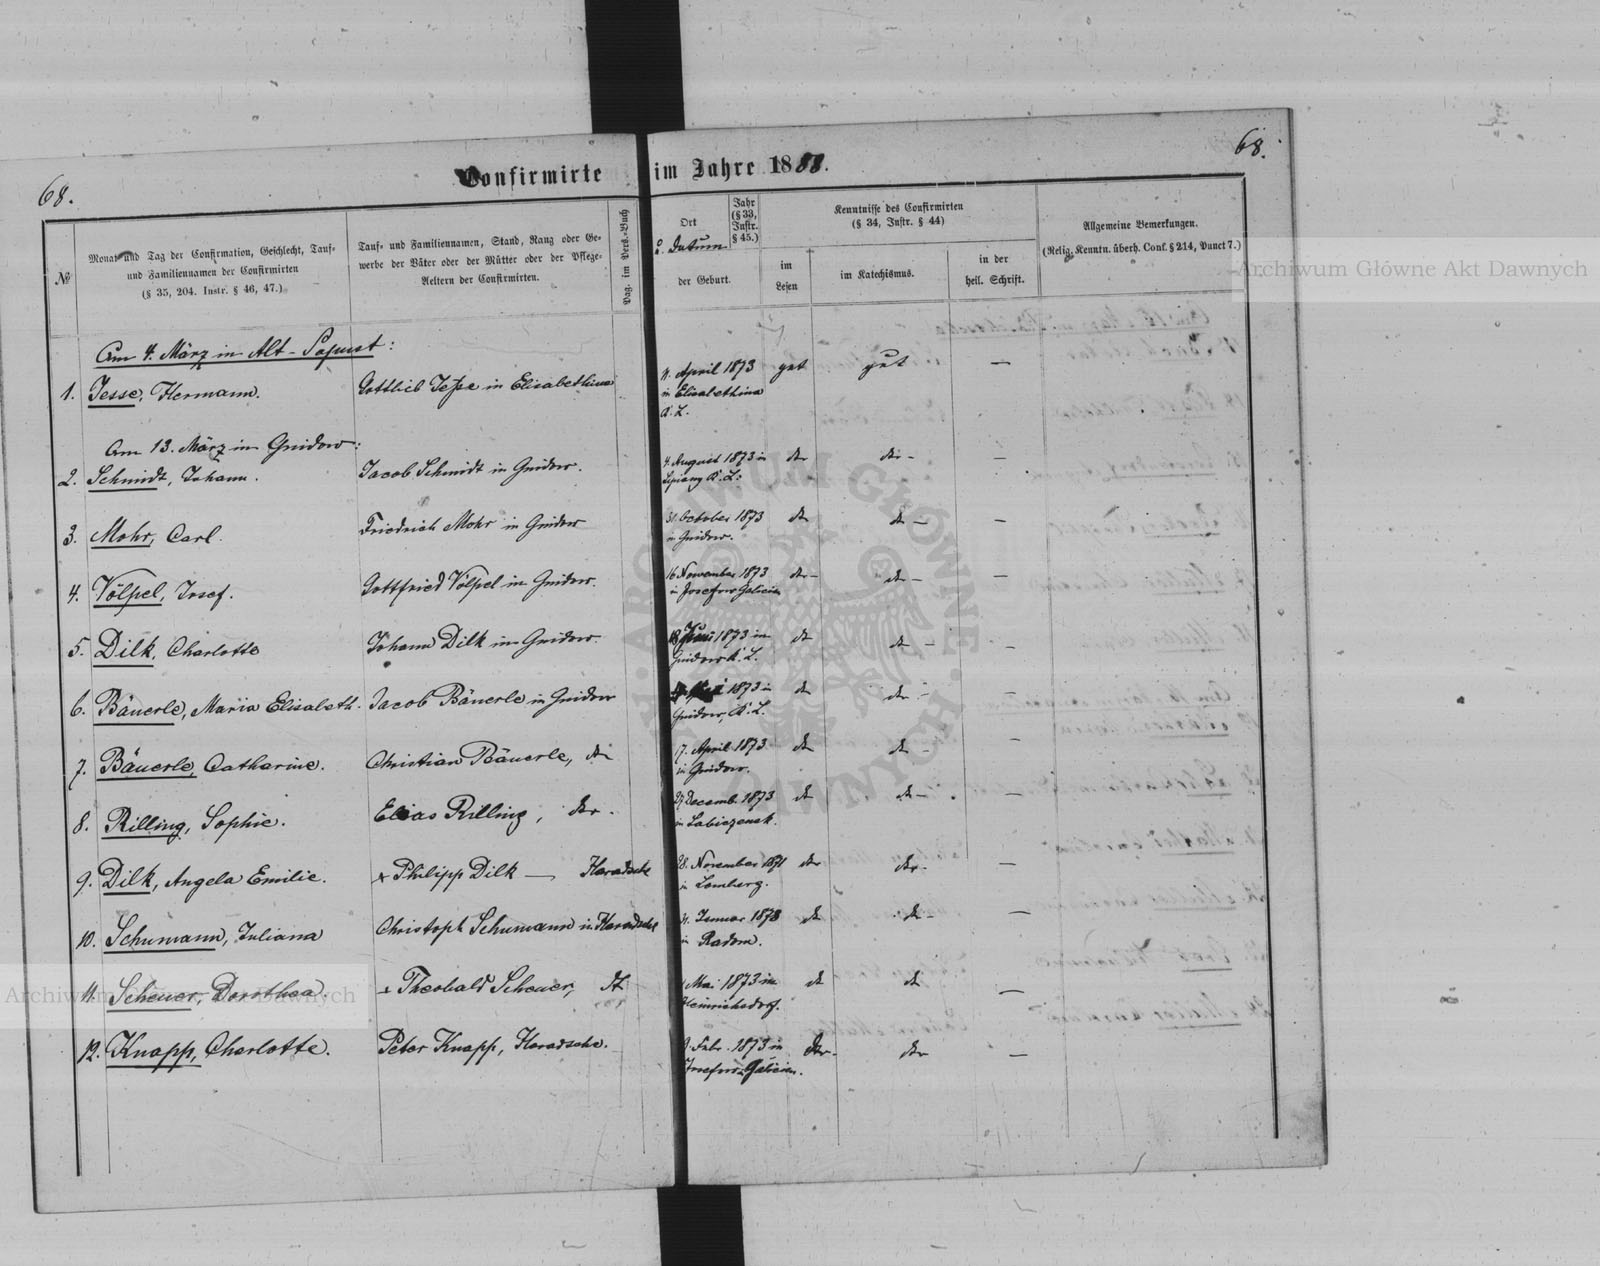 68.
Confirmirte im Jahre 1888.
68.
№
Monat und Tag der Confirmation, Geschlecht, Tauf-
und Familiennamen der Confirmirten
(§ 35, 204. Instr. § 46, 47.)
Tauf- und Familiennamen, Stand, Rang oder Ge-
werbe der Väter oder der Mütter oder der Pflege-
Aeltern der Confirmirten.
Pag. im Pers.-Buch
Ort
u. Datum
der Geburt.
Jahr
(§ 33,
Instr.
§ 45.)
Kenntnisse des Confirmirten
(§ 34, Instr. § 44)
im
Lesen
im Katechismus.
in der
heil. Schrift.
Allgemeine Bemerkungen.
(Relig. Kenntn. überh. Conf. § 214, Punct 7.)
Am 4. März in Alt-
1. Jesse, Hermann. Gottlieb Jesse in Elisabethina 11. April 1873 gut gut —
in Elisabethina
K. L.
Am 13. März in Gnidow:
2. Schmidt, Johann. Jacob Schmidt in Gnidow. 4. August 1873 in dto dto —
K. L.
3. Mohr, Carl. Friedrich Mohr in Gnidow 31. October 1873 dto dto —
in Gnidow.
4. Völpel, Josef. Gottfried Völpel in Gnidow. 16 November 1873 dto dto —
in Josefow Galicien
5. Dilk, Charlotte Johann Dilk in Gnidow 1873 in dto dto —
Gnidow K. L.
6. Bäuerle, Maria Elisabeth. Jacob Bäuerle in Gnidow 1873 in dto dto —
Gnidow, K. L.
7. Bäuerle, Catharine. Christian Bäuerle, dto 17. April 1873 dto dto —
in Gnidow.
8. Rilling, Sophie. Elias Rilling, dto. 27 Decemb. 1873 dto dto —
in
9. Dilk, Angela Emilie. + Philipp Dilk — Horadsche 28. November 1871 dto dto —
in Lemberg.
10. Schumann, Juliana Christoph Schumann in Horadsche 31. Januar 1873 dto dto —
in Radom.
11. Scheuer, Dorothea. + Theobald Scheuer, dto Mai 1873 in dto dto —
Heinrichsdorf.
12. Knapp, Charlotte. Peter Knapp, Horadsche. 9. Febr. 1873 in dto dto —
Josefow Galicien.
Archiwum Główne Akt Dawnych
ARCHIWUM GŁÓWNE AKT DAWNYCH